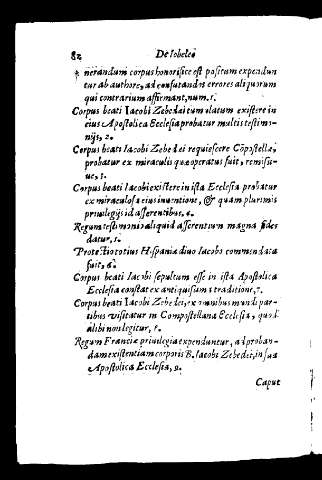 82 De Iobeleo
nerandum corpus honorifice est positum expendun
tur ab authore, ad confutandos errores aliquorum
qui contrarium affirmant, num. 1.
Corpus beati Iacobi Zebedaei tumulatum existere in
eius Apostolica Ecclesia probatur multis testimo-
nijs, 2.
Corpus beati Iacobi Zebedei requiescere Cõpostellæ,
probatur ex miraculis quæ operatus fuit, remissi-
uè, 3.
Corpus beati Iacobi existere in ista Ecclesia probatur
ex miraculosa eius inuentione, & quam plurimis
priuilegijs id asserentibus, 4.
Regum testimonio aliquid asserentium magna fides
datur, 5.
Protectio totius Hispaniæ diuo Iacobo commendata
fuit, 6.
Corpus beati Iacobi sepultum esse in ista Apostolica
Ecclesia constat ex antiquissima traditione, 7.
Corpus beati Iacobi Zebedei, ex omnibus mundi par-
tibus visitatur in Compostellana Ecclesia, quod
alibi non legitur, 8.
Regum Franciæ priuilegia expenduntur, ad proban-
dam existentiam corporis B. Iacobi Zebedei, in sua
Apostolica Ecclesia, 9.
Caput